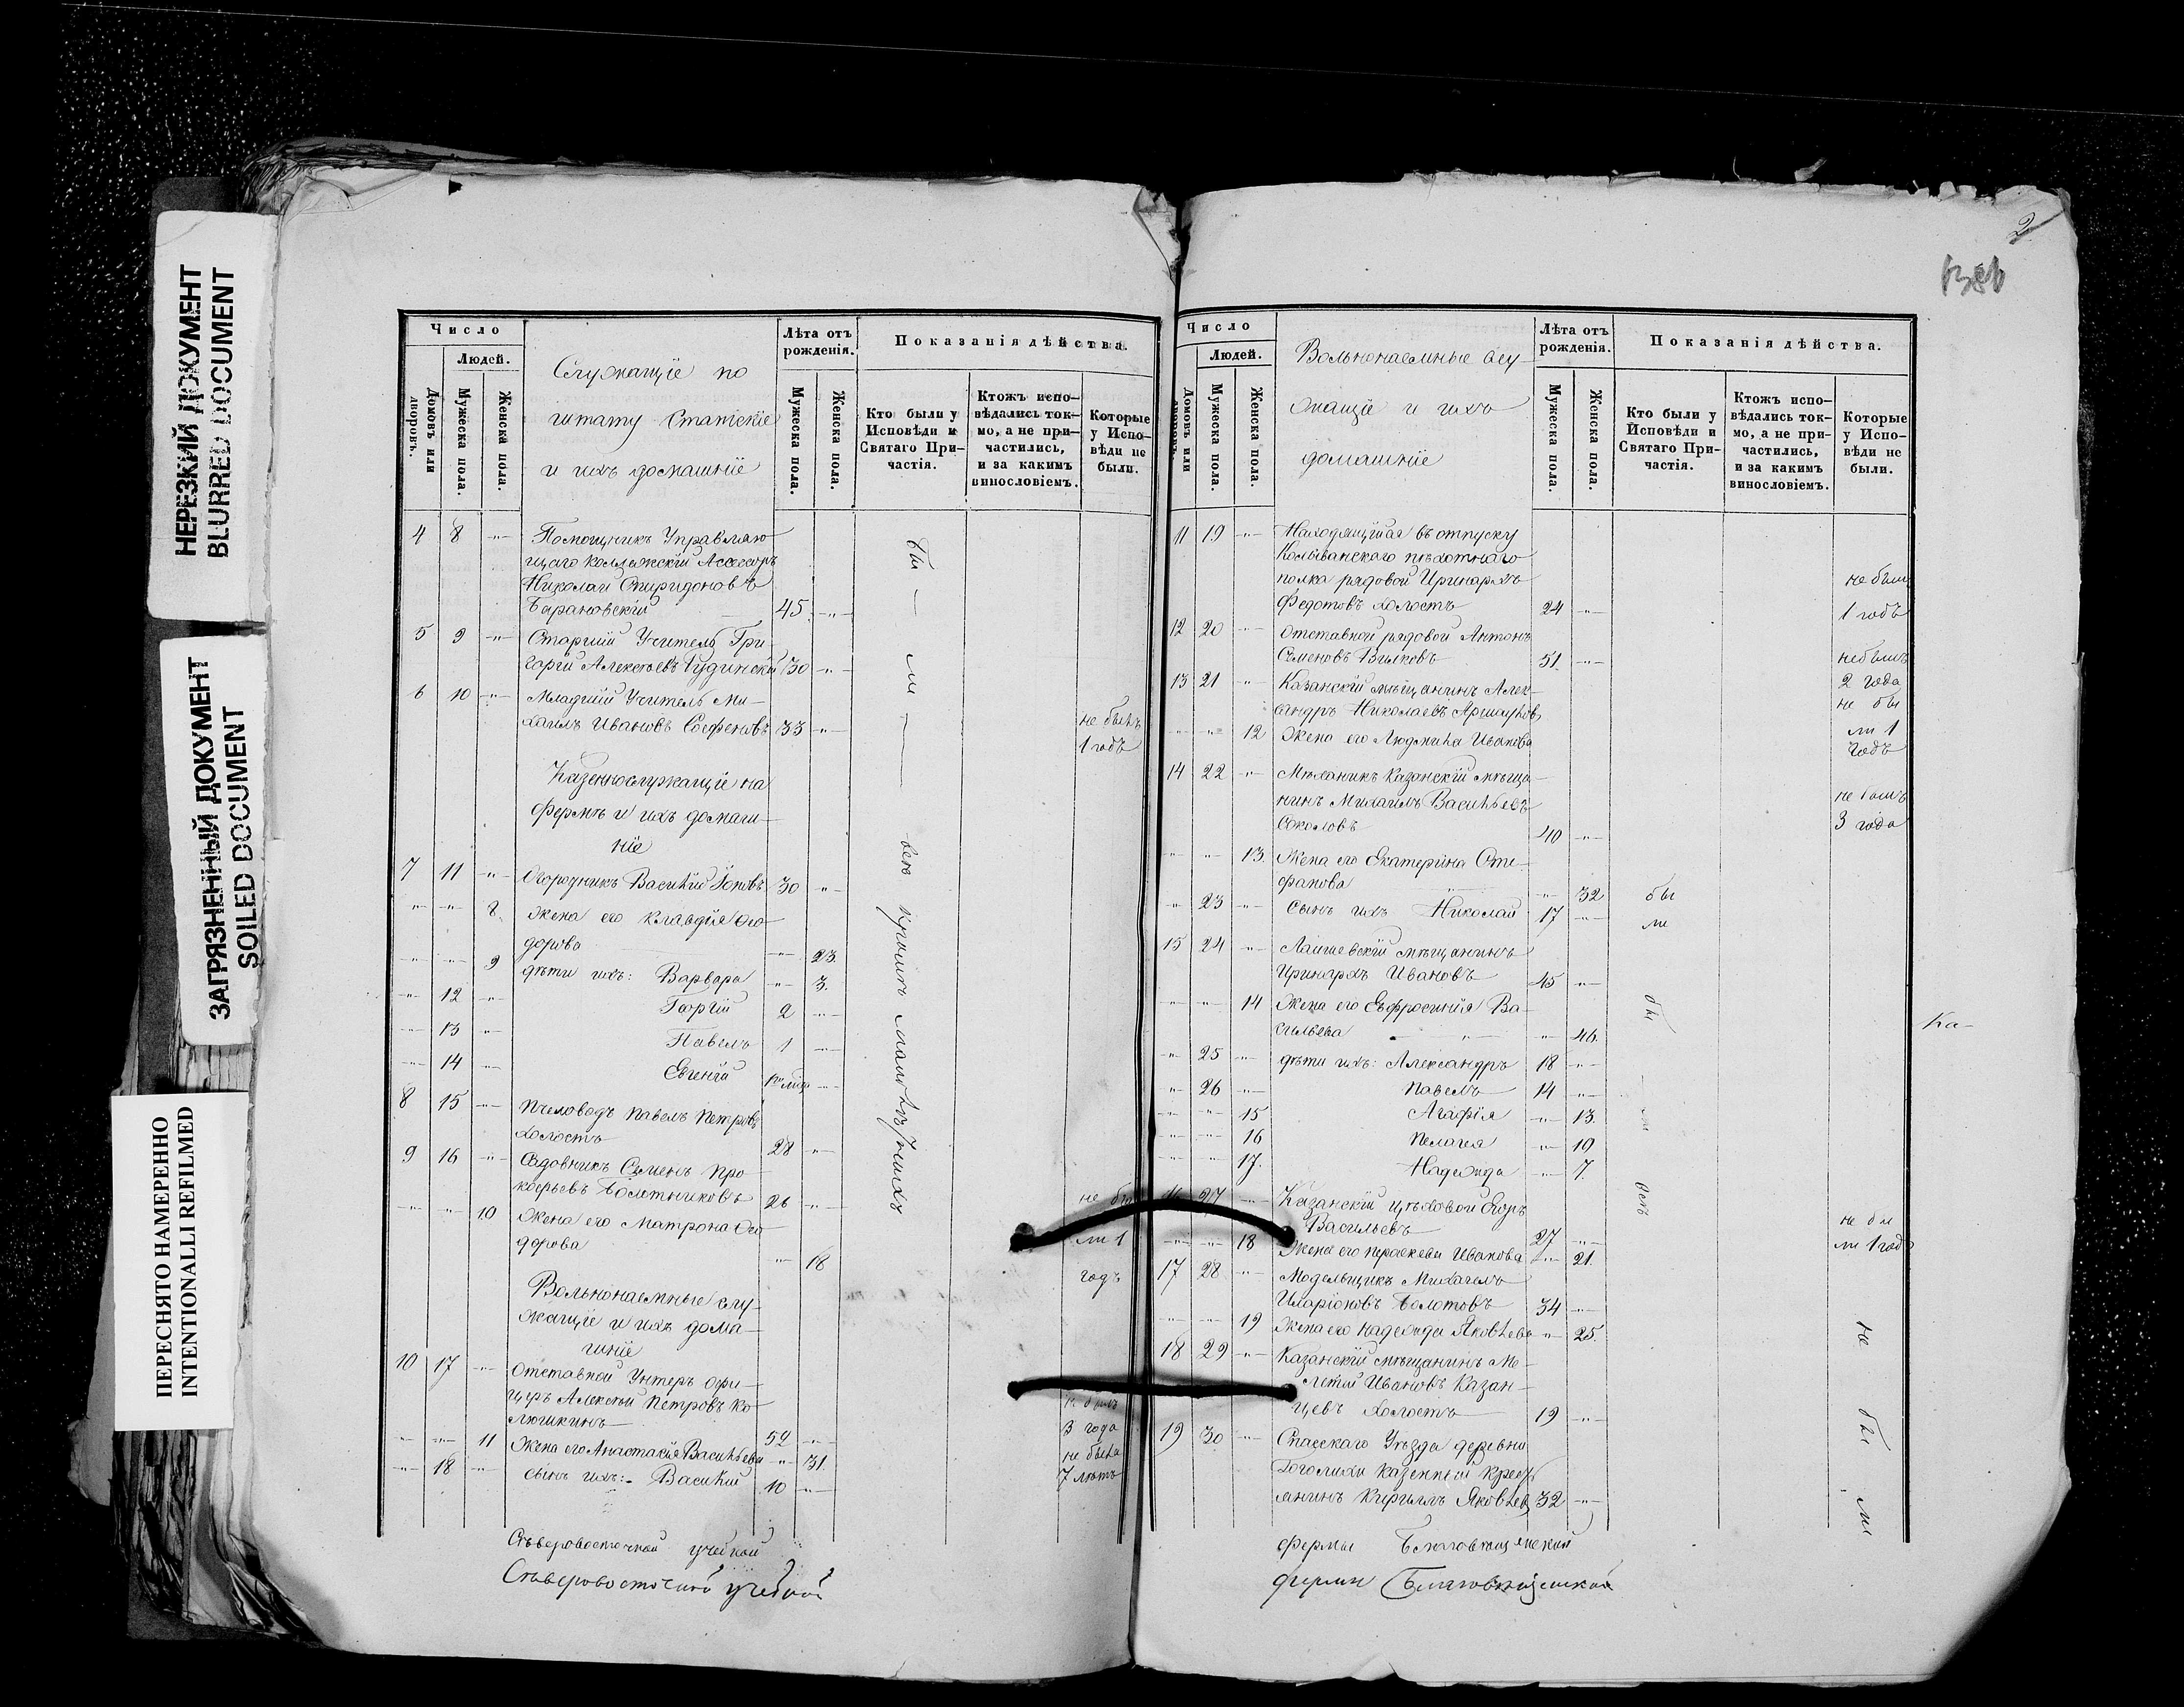 НЕРЕЗКИЙ ДОКУМЕНТ
BLURRED DOCUMENT
ЗАГРЯЗНЕННЫЙ ДОКУМЕНТ
SOILED DOCUMENT
ПЕРЕСНЯТО НАМЕРЕННО
INTENTIONALLI REFILMED
Число
Людей.
Домовъ или дворовъ.
Мужеска пола.
Женска пола.
Служащіе по
штату Статскіе
и ихъ домашніе
Лѣта отъ рожденія.
Мужеска пола.
Женска пола.
Показанія дѣйства.
Кто были у Исповѣди и Святаго Причастія.
Ктожъ исповѣдались токмо, а не причастились, и за какимъ винословіемъ.
Которые у Исповѣди не были.
4 8 -"- Помощникъ Управляю
щаго Коллежскій Ассесоръ
Николай Спиридоновъ
Барановскій 45 -"-
5 9 -"- Старшій Учитель Гри
горій Алексѣевъ Рудинскій 30 -"-
6 10 -"- Младшій Учитель Ми-
хаилъ Ивановъ Софеновъ 33 -"- не былъ
1 годъ
Казеннослужащіе на
фермѣ и ихъ домаш-
ніе
7 11 -"- Огородникъ Василій Іоновъ 30 -"-
-"- -"- 8. жена его Клавдія Ѳео-
дорова -"- 23.
-"- -"- 9 дѣти ихъ: Варвара -"- 3.
-"- 12 -"- Георгій 2 -"-
-"- 13 -"- Павелъ 1 -"-
-"- 14 -"- Евгеній -"-
8 15 -"- Пчеловодъ Павелъ Петровъ
холостъ 28 -"-
9 16 -"- Садовникъ Семенъ Про
кофьевъ Болотниковъ 26 -"- не бы
-"- -"- 10 Жена его Матрона Ѳео
дорова -"- 18 ли 1
годъ
бы — ли — всѣ кромѣ малолѣтнихъ
Вольнонаемные слу-
жащіе и ихъ дома-
шніе
10 17 -"- Отставной Унтеръ офи-
церъ Алексѣй Петровъ Ко
люшкинъ 52 -"- не былъ
3 года
-"- -"- 11 Жена его Анастасія Васильева -"- 31. не была
-"- 18 -"- сынъ ихъ: Василій 10 -"- 7 лѣтъ
Сѣверовосточной учебной
Сѣверовосточной учебной
2
Число
Людей.
Домовъ или дворовъ.
Мужеска пола.
Женска пола.
Вольнонаемные слу-
жащіе и ихъ
домашніе
Лѣта отъ рожденія.
Мужеска пола.
Женска пола.
Показанія дѣйства.
Кто были у Исповѣди и Святаго Причастія.
Ктожъ исповѣдались токмо, а не причастились, и за какимъ винословіемъ.
Которые у Исповѣди не были.
11 19 -"- Находящійся въ отпуску
Колыванскаго пѣхотнаго
полка рядовой Иринархъ не былъ
Федотовъ холостъ 24 -"- 1 годъ
12 20 -"- Отставной рядовой Антонъ
Семеновъ Вилковъ 51. -"- не былъ
2 года
13 21 -"- Казанскій мѣщанинъ Алек-
сандръ Николаевъ не бы
-"- -"- 12 Жена его Людмила Иванова ли 1
годъ
14 22 -"- Механикъ Казанскій мѣща-
нинъ Михаилъ Васильевъ не былъ
Соколовъ 40 -"- 3 года
-"- -"- 13. Жена его Екатерина Сте-
фанова -"- 32 бы
-"- 23 -"- Сынъ ихъ Николай 17 -"- ли
15 24 -"- Лаишевскій мѣщанинъ
Иринархъ Ивановъ 45 -"-
-"- -"- 14 Жена его Евфросинія Ва-
сильева -"- 46. бы
Ка-
-"- 25 -"- дѣти ихъ: Александръ 18 -"-
-"- 26 -"- Павелъ 14 -"-
-"- -"- 15 Агафія -"- 13. ли
-"- -"- 16 Пелагея -"- 10
-"- -"- 17. Надежда -"- 7. всѣ
16 27 -"- Казанскій цѣховой Егоръ
Васильевъ 27 -"- не бы
-"- -"- 18 Жена его Параскева Иванова -"- 21. ли 1 годъ
17 28 -"- Модельщикъ Михаилъ
Иларіоновъ Болотовъ 34 -"-
-"- -"- 19 Жена его Надежда Яковлева -"- 25. не
18 29 -"- Казанскій мѣщанинъ Ме-
летій Ивановъ Казан-
цевъ холостъ 19 -"- бы
19 30 -"- Спасскаго Уѣзда деревни
казенный крест
янинъ Кириллъ Яковлевъ 32 -"- ли
фермы Благовѣщенской
фермы Благовѣщенской